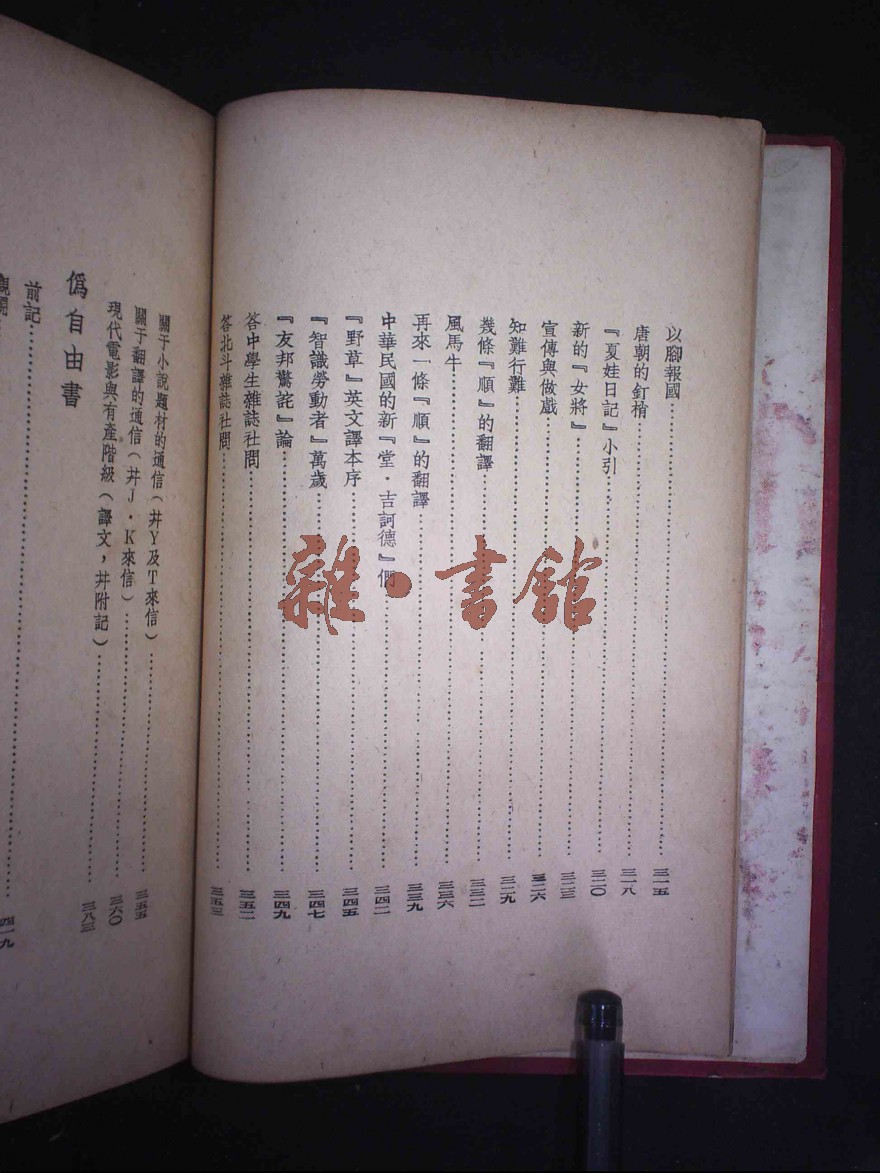 以腳報國…………三一五
唐朝的釘梢…………三一八
『夏娃日記』小引…………三二〇
新的『女將』…………三二三
宣傳與做戲…………三二六
知難行難…………三二九
幾條『順』的翻譯…………三三二
風馬牛…………三三六
再來一條『順』的翻譯…………三三九
中華民國的新『堂·吉訶德』們…………三四二
『野草』英文譯本序…………三四五
『智識勞動者』萬歲…………三四七
『友邦驚詫』論…………三四九
答中學生雜誌社問…………三五二
答北斗雜誌社問…………三五三
關于小說題材的通信(幷Y及T來信)…………三五五
關于翻譯的通信(幷J·K來信)…………三六〇
現代電影與有產階級(譯文,幷附記)…………三八三
僞自由書
前記…………四一九
雜·書館